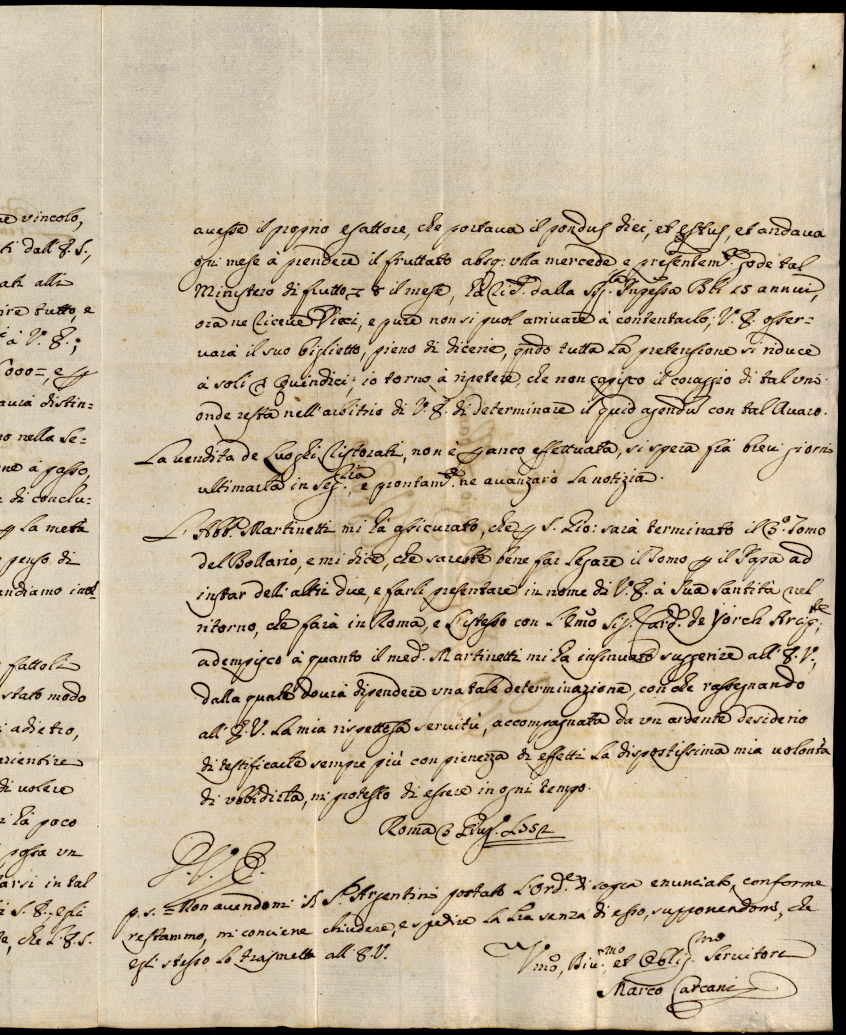 ue vincolo,
ti dall'E.S.,
ati alli
ore tutto, e
à V.E.;
000=, e p
aurà distin=
no nella se=
ne à passo,
di conclu=
p la metà
penso di
andiamo inol
fattoli
stato modo
i adietro,
di volere
i hà poco
possa un
arsi in tal
i S.E. egli
e, che l'E.S.
auesse il proprio esattore, che portaua il pondus diei, et estus, et andaua
ogni mese à prendere il fruttato absq: ulla mercede e presentem.te gode tal
Ministero di frutto il mese, dalla Sig.ra 15 annui,
ora ne riceue Dieci, e pure non si puol arriuare à contentarlo; V.E. osser=
uarà il suo biglietto, pieno di dicerie, qndo tutta la pretensione si riduce
à soli quindici; io torno à ripetere, che non capisco il coraggio di tal uni
onde resta nell'arbitrio di V.E. di determinare il quid agendus con tal Auaro.
La uendita de Luoghi Ristorati, non è p anco effettuata, si spera frà breui giorni
ultimarla in Seg.ria, e prontam.te ne auanzarò la notizia.
L'Abb.e Martinetti mi hà assicurato, che p S. Gio: sarà terminato il 3.o Tomo
del Bollario, e mi dice, che sarebbe bene far legare il Tomo p il Papa ad
instar dell'altri due, e farli presentare in nome di V.E. à Sua Santità nel
ritorno, che farà in Roma, e l'istesso con l'Emo Sig. Card. de Yorch Arcip.te;
adempisco à quanto il med.o Martinetti mi hà insinuato suggerire all'E.V.,
dalla quale dourà dipendere una tale determinazione, con che rassegnando
all'E.V. la mia rispettosa seruitù, accompagnata da un ardente desiderio
di testificarle sempre più con pienezza di effetti la dispostissima mia uolontà
di ubbidirla, mi protesto di essere in ogni tempo.
Roma 3 Giug.o 1752
D.V.E.
p.s. = Non auendomi il S.r Argentini portato l'Ord.e di sopra enunciato, conforme
restammo, mi conuiene chiudere, e spedire la pnte senza di esso, supponendomi, che
egli stesso lo trasmetta all'E.V.
Vmo, Diu.mo, et Oblig.mo Seruitore
Marco Carcani